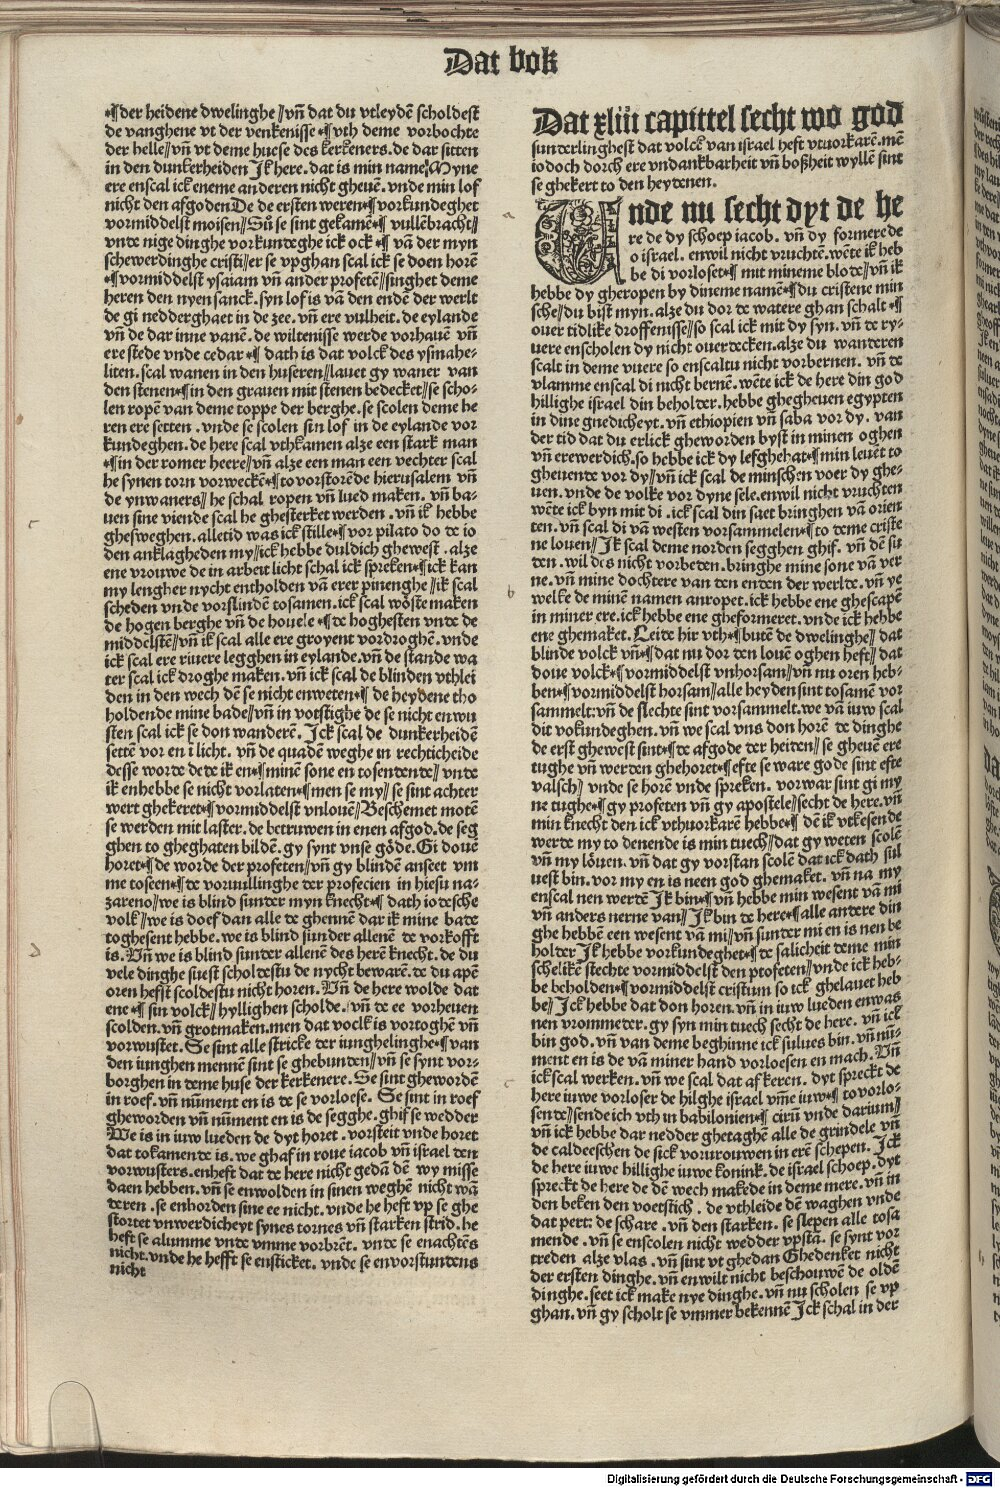 Dat bok
•¶der heidene dwelinghe//vn̄ dat du vtleydē scholdest
de vanghene vt der venkenisse•¶vth deme vorbochte
der helle//vn̄ vt deme huese des kerkeners. de dar sitten
in den dunkerheiden Jk here. dat is min name. Myne
ere enscal ick eneme anderen nicht gheuē. vnde min lof
nicht den afgoden De de ersten weren•¶vorkundeghet
vormiddelst moisen//Sū se sint gekamē•¶ vullēbracht//
vnde nige dinghe vorkundeghe ick ock •¶ vā der myn
schewerdinghe cristi//er se vpghan scal ick se doen horē
•¶vormiddelst ysaiam vn̄ ander profetē//singhet deme
heren den nyen sanck. syn lof is vā den endē der werlt
de gi nedderghaet in de zee. vn̄ ere vulheit. de eylande
vn̄ de dar inne vanē. de wiltenisse werde vorhauē vn̄
ere stede vnde cedar •¶ dath is dat volck des ysmahe-
liten. scal wanen in den huseren//lauet gy waner van
den stenen•¶in den grauen mit stenen bedecket//se scho-
len ropē van deme toppe der berghe. se scolen deme he
ren ere setten . vnde se scolen sin lof in de eylande vor
kundeghen. de here scal vthkamen alze een stark man
•¶in der romer heere//vn̄ alze een man een vechter scal
he synen torn vorweckē•¶to vorstorēde hierusalem vn̄
de ynwaners//he schal ropen vn̄ lued maken. vn̄ ba-
uen sine viende scal he ghesterket werden . vn̄ ik hebbe
ghesweghen. alletid was ick stille•¶ vor pilato do de io
den anklagheden my//ick hebbe duldich ghewest . alze
ene vrouwe de in arbeit licht schal ick spreken•¶ick kan
my lengher nycht entholden vā erer pinenghe//ik scal
scheden vnde vorslindē tosamen. ick scal wöste maken
de hogen berghe vn̄ de houele •¶de hoghesten vnde de
middelstē//vn̄ ik scal alle ere groyent vordroghē. vnde
ick scal ere riuere legghen in eylande. vn̄ de stande wa
ter scal ick droghe maken. vn̄ ick scal de blinden vthlei
den in den wech dē se nicht enweten•¶ de heydene tho
holdende mine bade//vn̄ in votstighe de se nicht enwu
sten scal ick se don wanderē. Jck scal de dunkerheidē
settē vor en ī licht. vn̄ de quadē weghe in rechticheide
desse worde dede ik en•¶ minē sone en tosendende// vnde
ik enhebbe se nicht vorlaten•¶men se my// se sint achter
wert ghekeret•¶vormiddelst vnlouē//Beschemet motē
se werden mit laster. de betruwen in enen afgod. de seg
ghen to gheghaten bildē. gy synt vnse göde. Gi douē
horet•¶de worde der profeten//vn̄ gy blindē anseet vm
me toseen•¶de voruullinghe der profecien in hiesu na-
zareno//we is blind sunder myn knecht•¶ dath iodesche
volk//we is doef dan alle de ghennē dar ik mine bade
toghesent hebbe. we is blind sunder allenē de vorkofft
is. Vn̄ we is blind sunder allenē des herē knecht. de du
vele dinghe suest scholdestu de nycht bewarē. de du apē
oren hefst scoldestu nicht horen. Vn̄ de here wolde dat
ene•¶ sin volck//hyllighen scholde. vn̄ de ee vorheuen
scolden. vn̄ grotmaken. men dat voclk is vortoghē vn̄
vorwustet. Se sint alle stricke der iunghelinghe•¶ van
den iunghen mennē sint se ghebunden//vn̄ se synt vor-
borghen in deme huse der kerkenere. Se sint ghewordē
in roef. vn̄ nūment en is de se vorloese. Se sint in roef
gheworden vn̄ nūment en is de segghe. ghif se wedder
We is in iuw lueden de dyt horet . vorsteit vnde horet
dat tokamende is. we ghaf in roue iacob vn̄ israel den
vorwusters. enheft dat de here nicht gedā dē wy misse
daen hebben. vn̄ se enwolden in sinen weghē nicht wā
deren . se enhorden sine ee nicht. vnde he heft vp se ghe
stortet vnwerdicheyt synes tornes vn̄ starken strid. he
heft se alumme vnde vmme vorbrēt. vnde se enachtēs
nicht. vnde he hefft se ensticket. vnde se envorstundens
nicht
Dat xliii capittel secht wo god
sunderlinghest dat volck van israel heft vtuorkarē. mē
iodoch dorch ere vndankbarheit vn̄ boßheit wyllē sint
se ghekert to den heydenen.
a
Vnde nu secht dyt de he
re de dy schoep iacob. vn̄ dy formerede
o israel. enwil nicht vruchtē. wēte ik heb
be di vorloset•¶ mit mineme blode//vn̄ ik
hebbe dy gheropen by dineme namē•¶du cristene min
sche//du bist myn. alze du dor de watere ghan schalt •¶
ouer tidlike droffenisse//so scal ick mit dy syn. vn̄ de ry-
uere enscholen dy nicht ouerdecken. alze du wanderen
scalt in deme vuere so enscaltu nicht vorbernen. vn̄ de
vlamme enscal di nicht bernē. wēte ick de here din god
hillighe israel din beholder. hebbe ghegheuen egypten
in dine gnedicheyt. vn̄ ethiopien vn̄ saba vor dy. van
der tid dat du erlick gheworden byst in minen oghen
vn̄ erewerdich. so hebbe ick dy lefghehat•¶min leuet to
gheuende vor dy//vn̄ ick scal de minschen voer dy ghe-
uen. vnde de volke voer dyne sele. enwil nicht vruchten
wēte ick byn mit di . ick scal din saet bringhen vā orien
ten. vn̄ scal di vā westen vorsammelen•¶to deme criste
ne louen//Jk scal deme norden segghen ghif. vn̄ dē su
den. wil des nicht vorbeden. bringhe mine sone vā ver
ne. vn̄ mine dochtere van den enden der werlde. vn̄ ye
b
welke de minē namen anropet. ick hebbe ene ghescapē
in miner ere. ick hebbe ene gheformeret. vnde ick hebbe
ene ghemaket. Leide hir vth•¶butē de dwelinghe// dat
blinde volck vn̄•¶dat nu dor den louē oghen heft//dat
doue volck•¶vormiddelst vnhorsam//vn̄ nu oren heb-
ben•¶vormiddelst horsam//alle heyden sint tosamē vor
sammelt: vn̄ de slechte sint vorsammelt. we vā iuw scal
dit vokundeghen. vn̄ we scal vns don horē de dinghe
de erst ghewest sint•¶de afgode der heiden// se gheuē ere
tughe vn̄ werden ghehoret•¶efte se ware gode sint efte
valsch// vnde se horē vnde spreken. vorwar sint gi my
ne tughe•¶gy profeten vn̄ gy apostele//secht de here. vn̄
min knecht den ick vthuorkarē hebbe•¶ dē ik vtkesende
werde my to denende is min tuech//dat gy weten scolē
vn̄ my löuen. vn̄ dat gy vorstan scolē dat ick dath sul
uest bin. vor my en is neen god ghemaket. vn̄ na my
enscal nen werdē Jk bin•¶vn̄ hebbe min wesent vā mi
vn̄ anders nerne van//Jk bin de here•¶alle andere din
ghe hebbē een wesent vā mi//vn̄ sunder mi en is nen be
holder Jk hebbe vorkundeghet•¶de salicheit deme min
schelikē slechte vormiddelst den ptofeten//vnde ick heb-
be beholden•¶vormiddelst cristum so ick ghelauet heb
be//Jck hebbe dat don horen. vn̄ in iuw lueden enwas
nen vrommeder. gy syn min tuech secht de here. vn̄ ick
bin god. vn̄ van deme beghinne ick sulues bin. vn̄ nū-
ment en is de vā miner hand vorloesen en mach. Vn̄
c
ick scal werken. vn̄ we scal dat afkeren. dyt spreckt de
here iuwe vorloser de hilghe israel vm̄e iuw•¶to vorlo-
sende//sende ick vth in babilonien•¶ cirū vnde darium//
vn̄ ick hebbe dar nedder ghetaghē alle de grindele vn̄
de caldeeschen de sick vorurouwen in erē schepen. Jck
de here iuwe hillighe iuwe konink. de israel schoep. dyt
spreckt de here de dē wech makede in deme mere. vn̄ in
den beken den voetstich . de vthleide dē waghen vnde
dat pert: de schare. vn̄ den starken. se slepen alle tosa
mende. vn̄ se enscolen nicht wedder vpstā. se synt vor
treden alze vlas . vn̄ sint vt ghedan Ghedenket nicht
der ersten dinghe. vn̄ enwilt nicht beschouwē de oldē
dinghe. seet ick make nye dinghe. vn̄ nu scholen se vp
ghan. vn̄ gy scholt se vmmer bekennē Jck schal in der
Digitalisierung gefördert durch die Deutsche Forschungsgemeinschaft - DFG